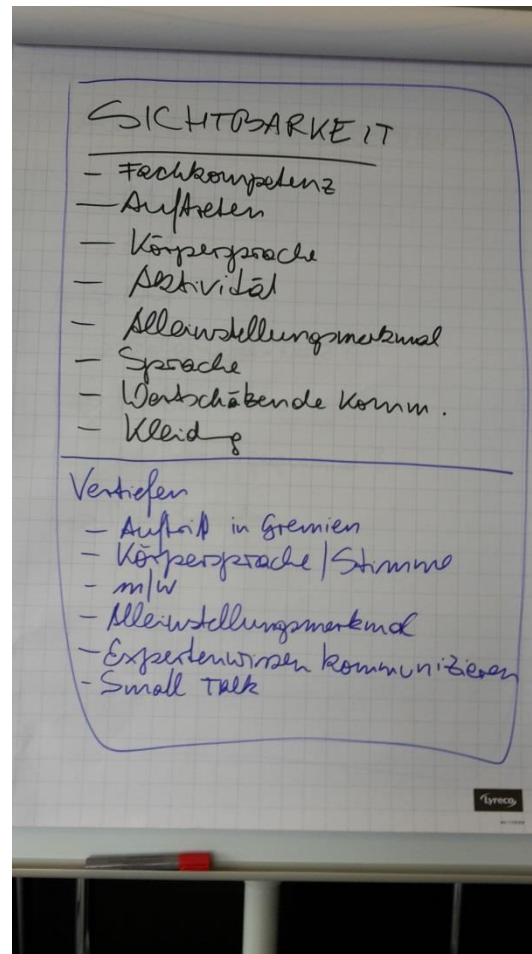 SICHTBARKEIT
- Fachkompetenz
- Auftreten
- Körpersprache
- Aktivität
- Alleinstellungsmerkmal
- Sprache
- Wertschätzende Komm.
- Kleidg
Vertiefen
- Auftritt in Gremien
- Körpersprache / Stimme
- m/w
- Alleinstellungsmerkmal
- Expertenwissen kommunizieren
- Small Talk
Lyreco